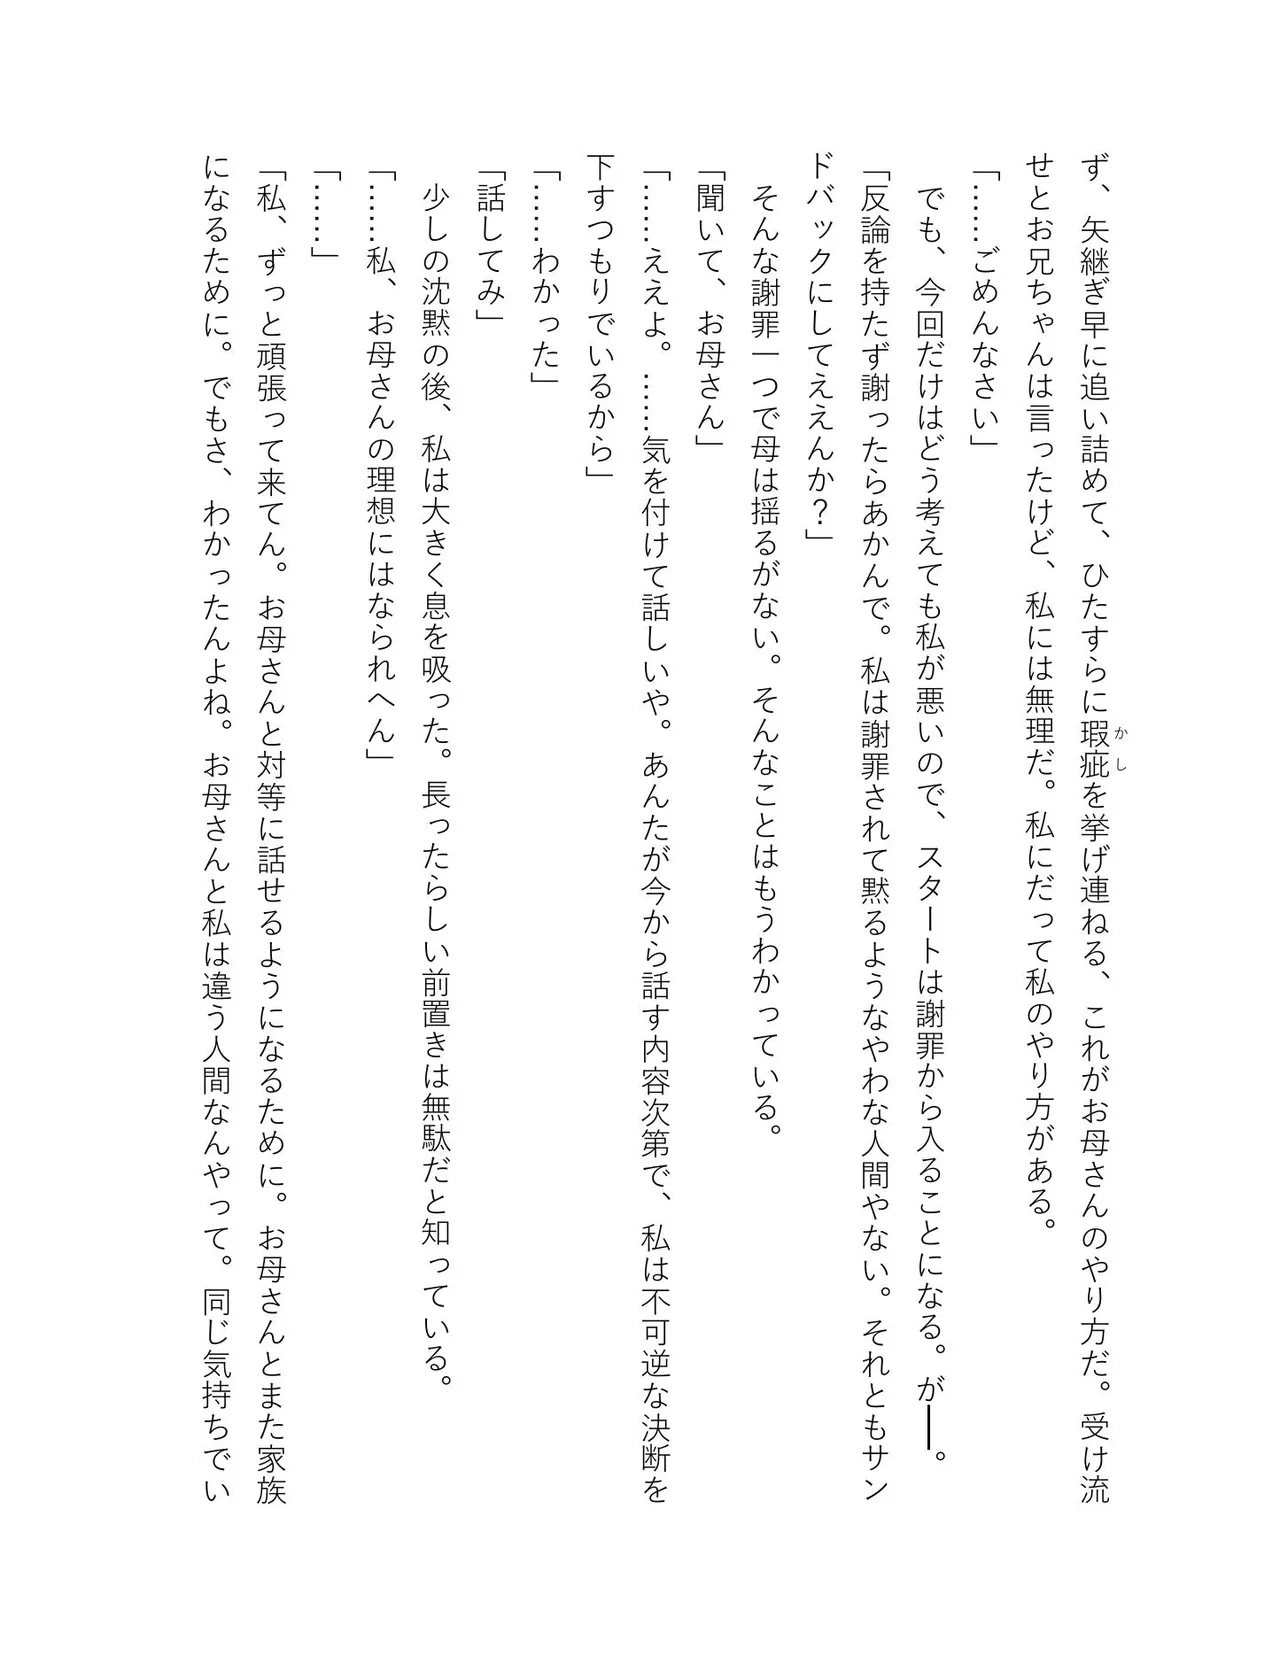 ず、矢継ぎ早に追い詰めて、ひたすらに瑕疵を挙げ連ねる、これがお母さんのやり方だ。受け流
かし
せとお兄ちゃんは言ったけど、私には無理だ。私にだって私のやり方がある。
「……ごめんなさい」
でも、今回だけはどう考えても私が悪いので、スタートは謝罪から入ることになる。が――。
「反論を持たず謝ったらあかんで。私は謝罪されて黙るようなやわな人間やない。それともサン
ドバックにしてええんか?」
そんな謝罪一つで母は揺るがない。そんなことはもうわかっている。
「聞いて、お母さん」
「……ええよ。……気を付けて話しいや。あんたが今から話す内容次第で、私は不可逆な決断を
下すつもりでいるから」
「……わかった」
「話してみ」
少しの沈黙の後、私は大きく息を吸った。長ったらしい前置きは無駄だと知っている。
「……私、お母さんの理想にはなられへん」
「……」
「私、ずっと頑張って来てん。お母さんと対等に話せるようになるために。お母さんとまた家族
になるために。でもさ、わかったんよね。お母さんと私は違う人間なんやって。同じ気持ちでい